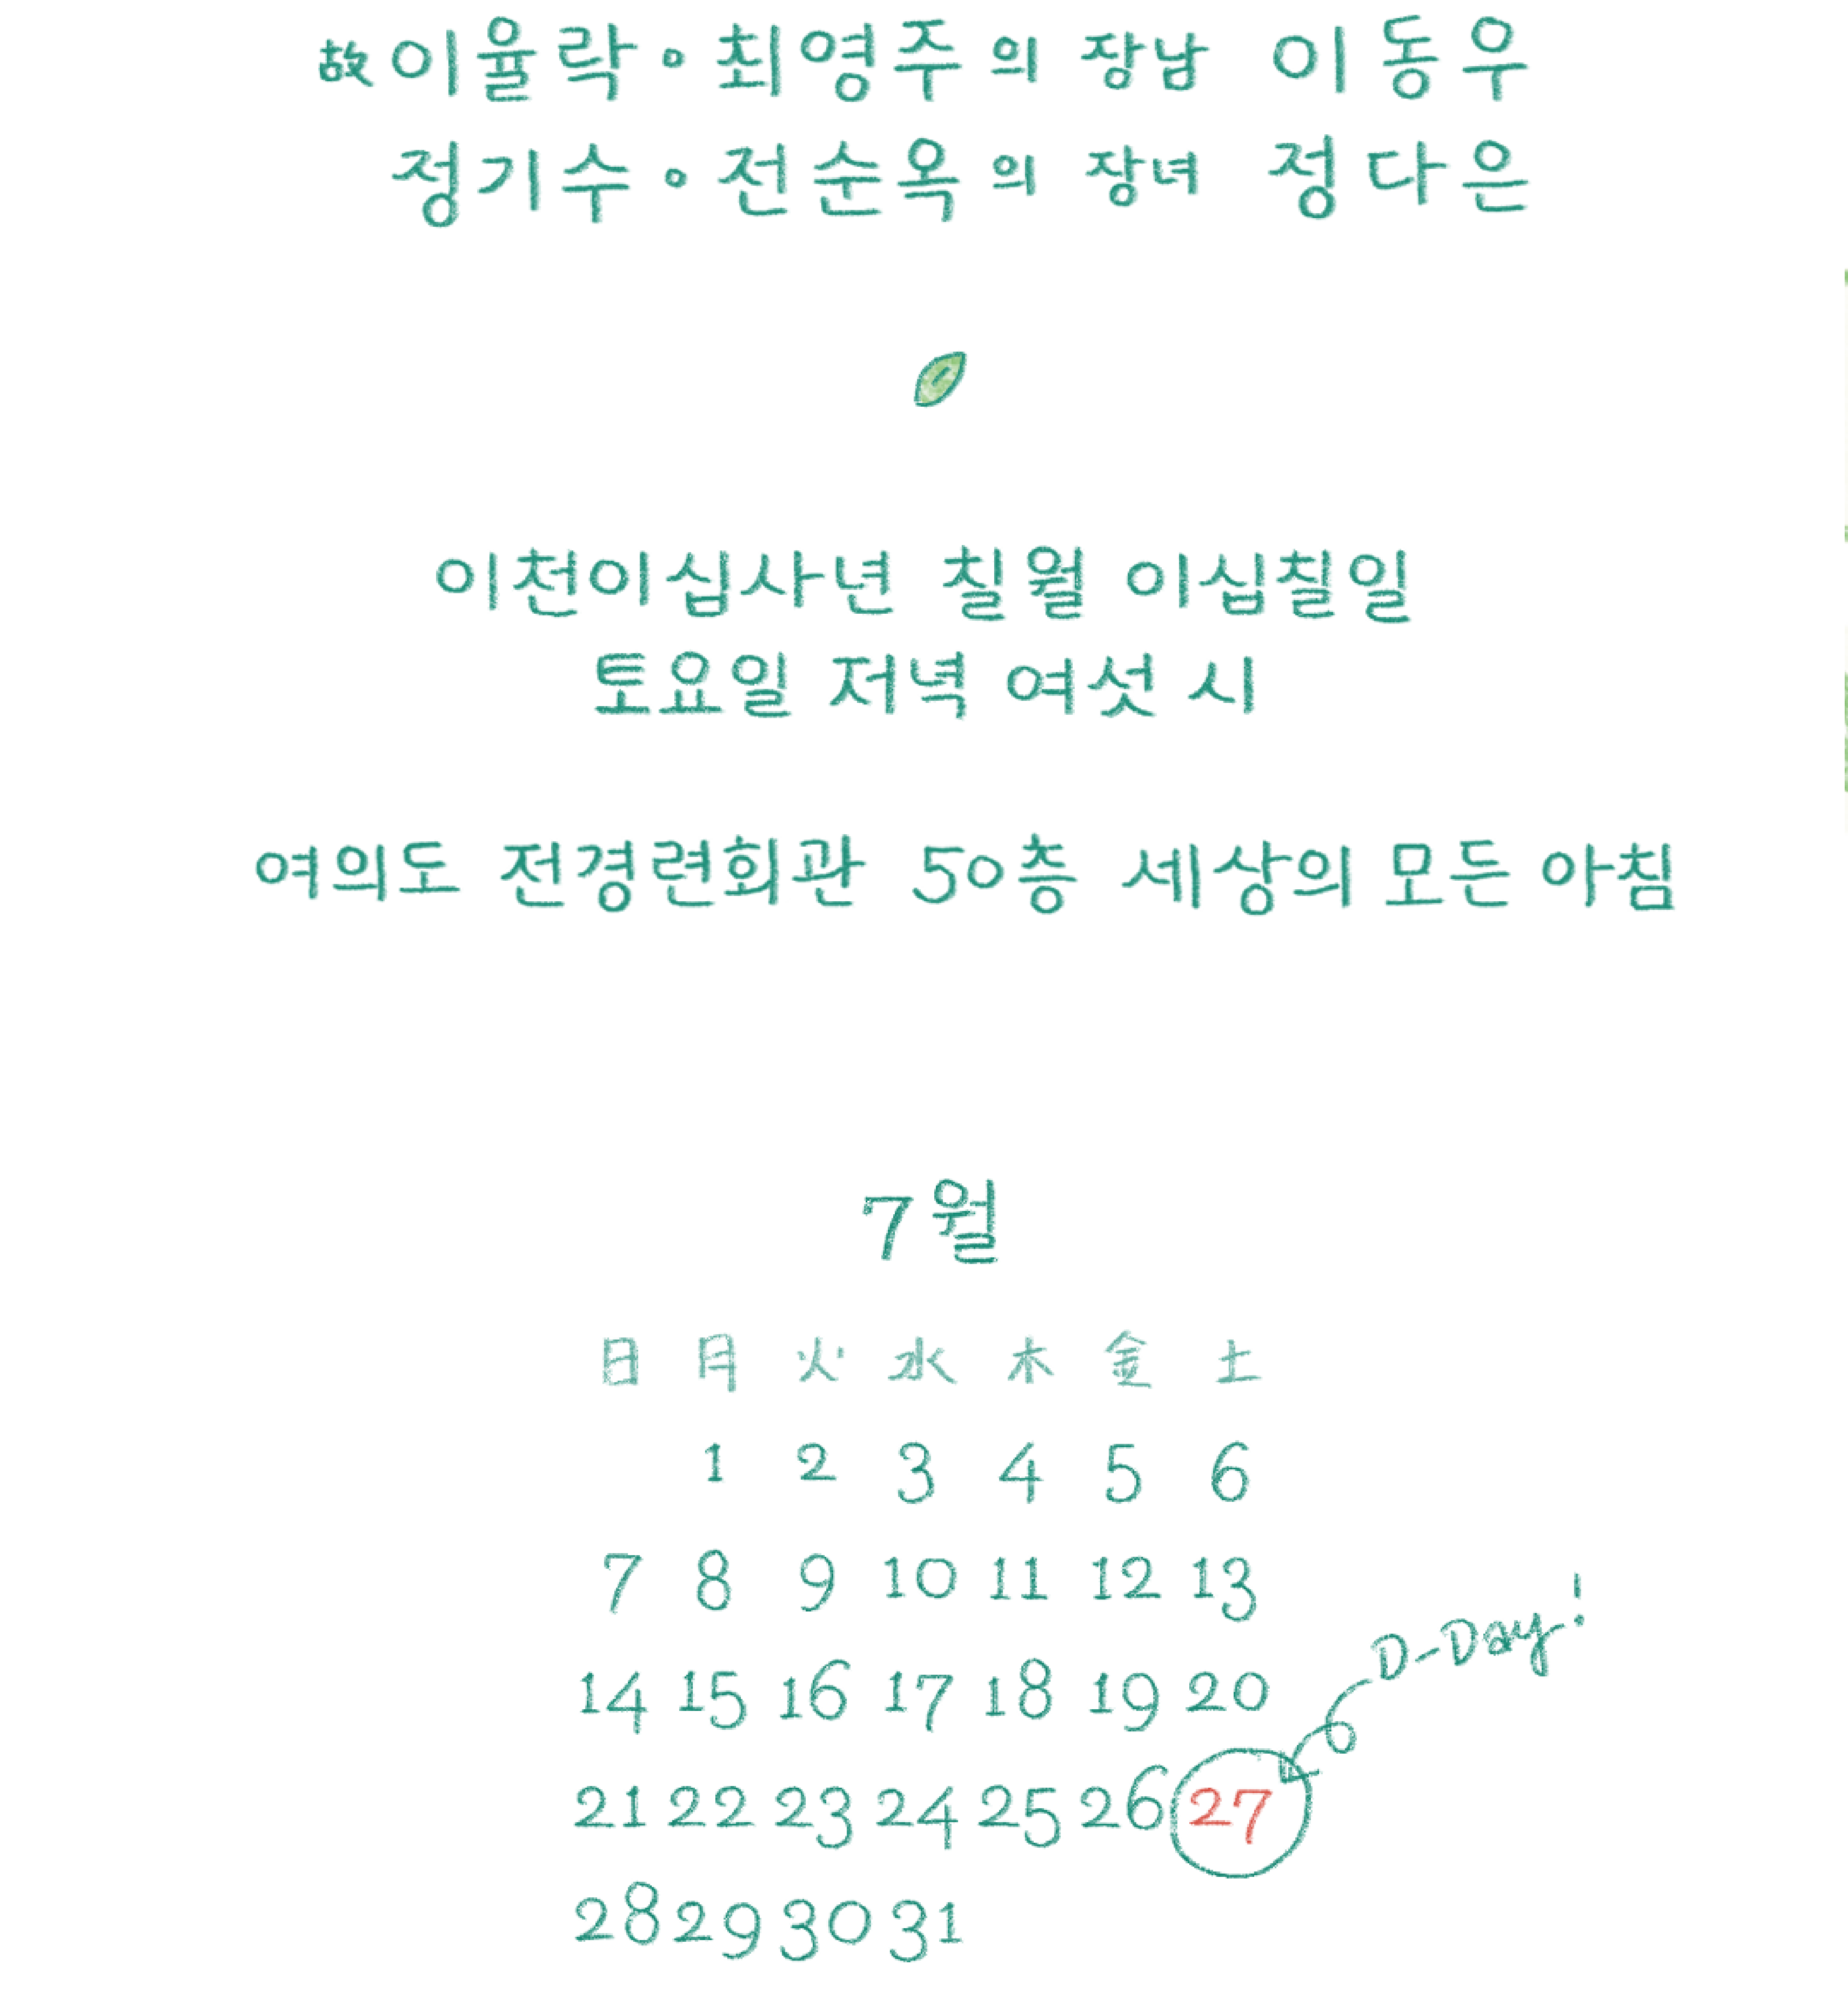 故이율락 · 최영주의 장남 이동우
정기수 · 전순옥의 장녀 정다은
이천이십사년 칠월 이십칠일
토요일 저녁 여섯 시
여의도 전경련회관 50층 세상의 모든 아침
7월
日 月 火 水 木 金 土
1 2 3 4 5 6
7 8 9 10 11 12 13
D-Day!
14 15 16 17 18 19 20
21 22 23 24 25 26 27
28 29 30 31